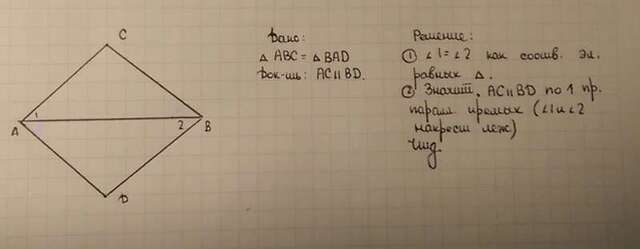 C
A
1
2
B
D
Дано:
△ ABC = △ BAD
Док-ть: AC ıı BD.
Решение:
① ∠1 = ∠2 как соотв. эл.
равных △.
② Значит, AC ıı BD по 1 пр.
парал прямых (∠1 и ∠2
накрест леж)
Чтд.